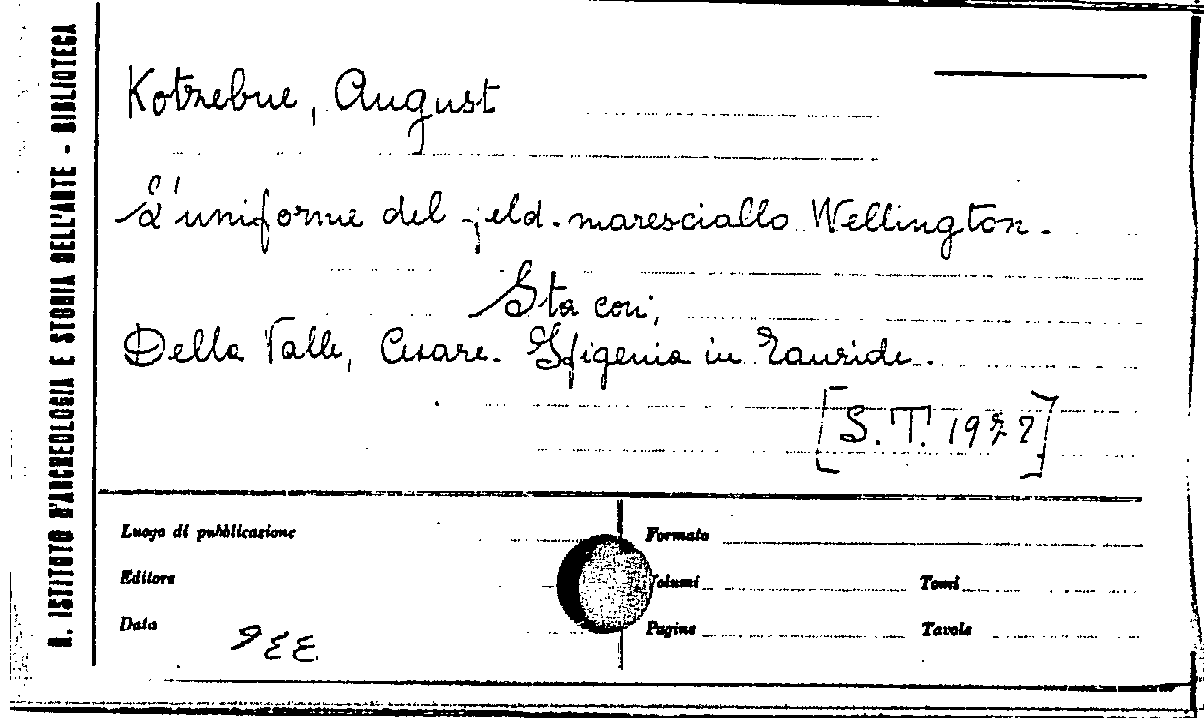 R. ISTITUTO D'ARCHEOLOGIA E STORIA DELL'ARTE - BIBLIOTECA
Kotzebue, August
L'uniforme del feld-maresciallo Wellington.
Sta con;
Della Valle, Cesare. Ifigenia in Tauride.
[S.T.
Luogo di pubblicazione
Formato
Editore
Volumi
Tomi
Data
Pagine
Tavole